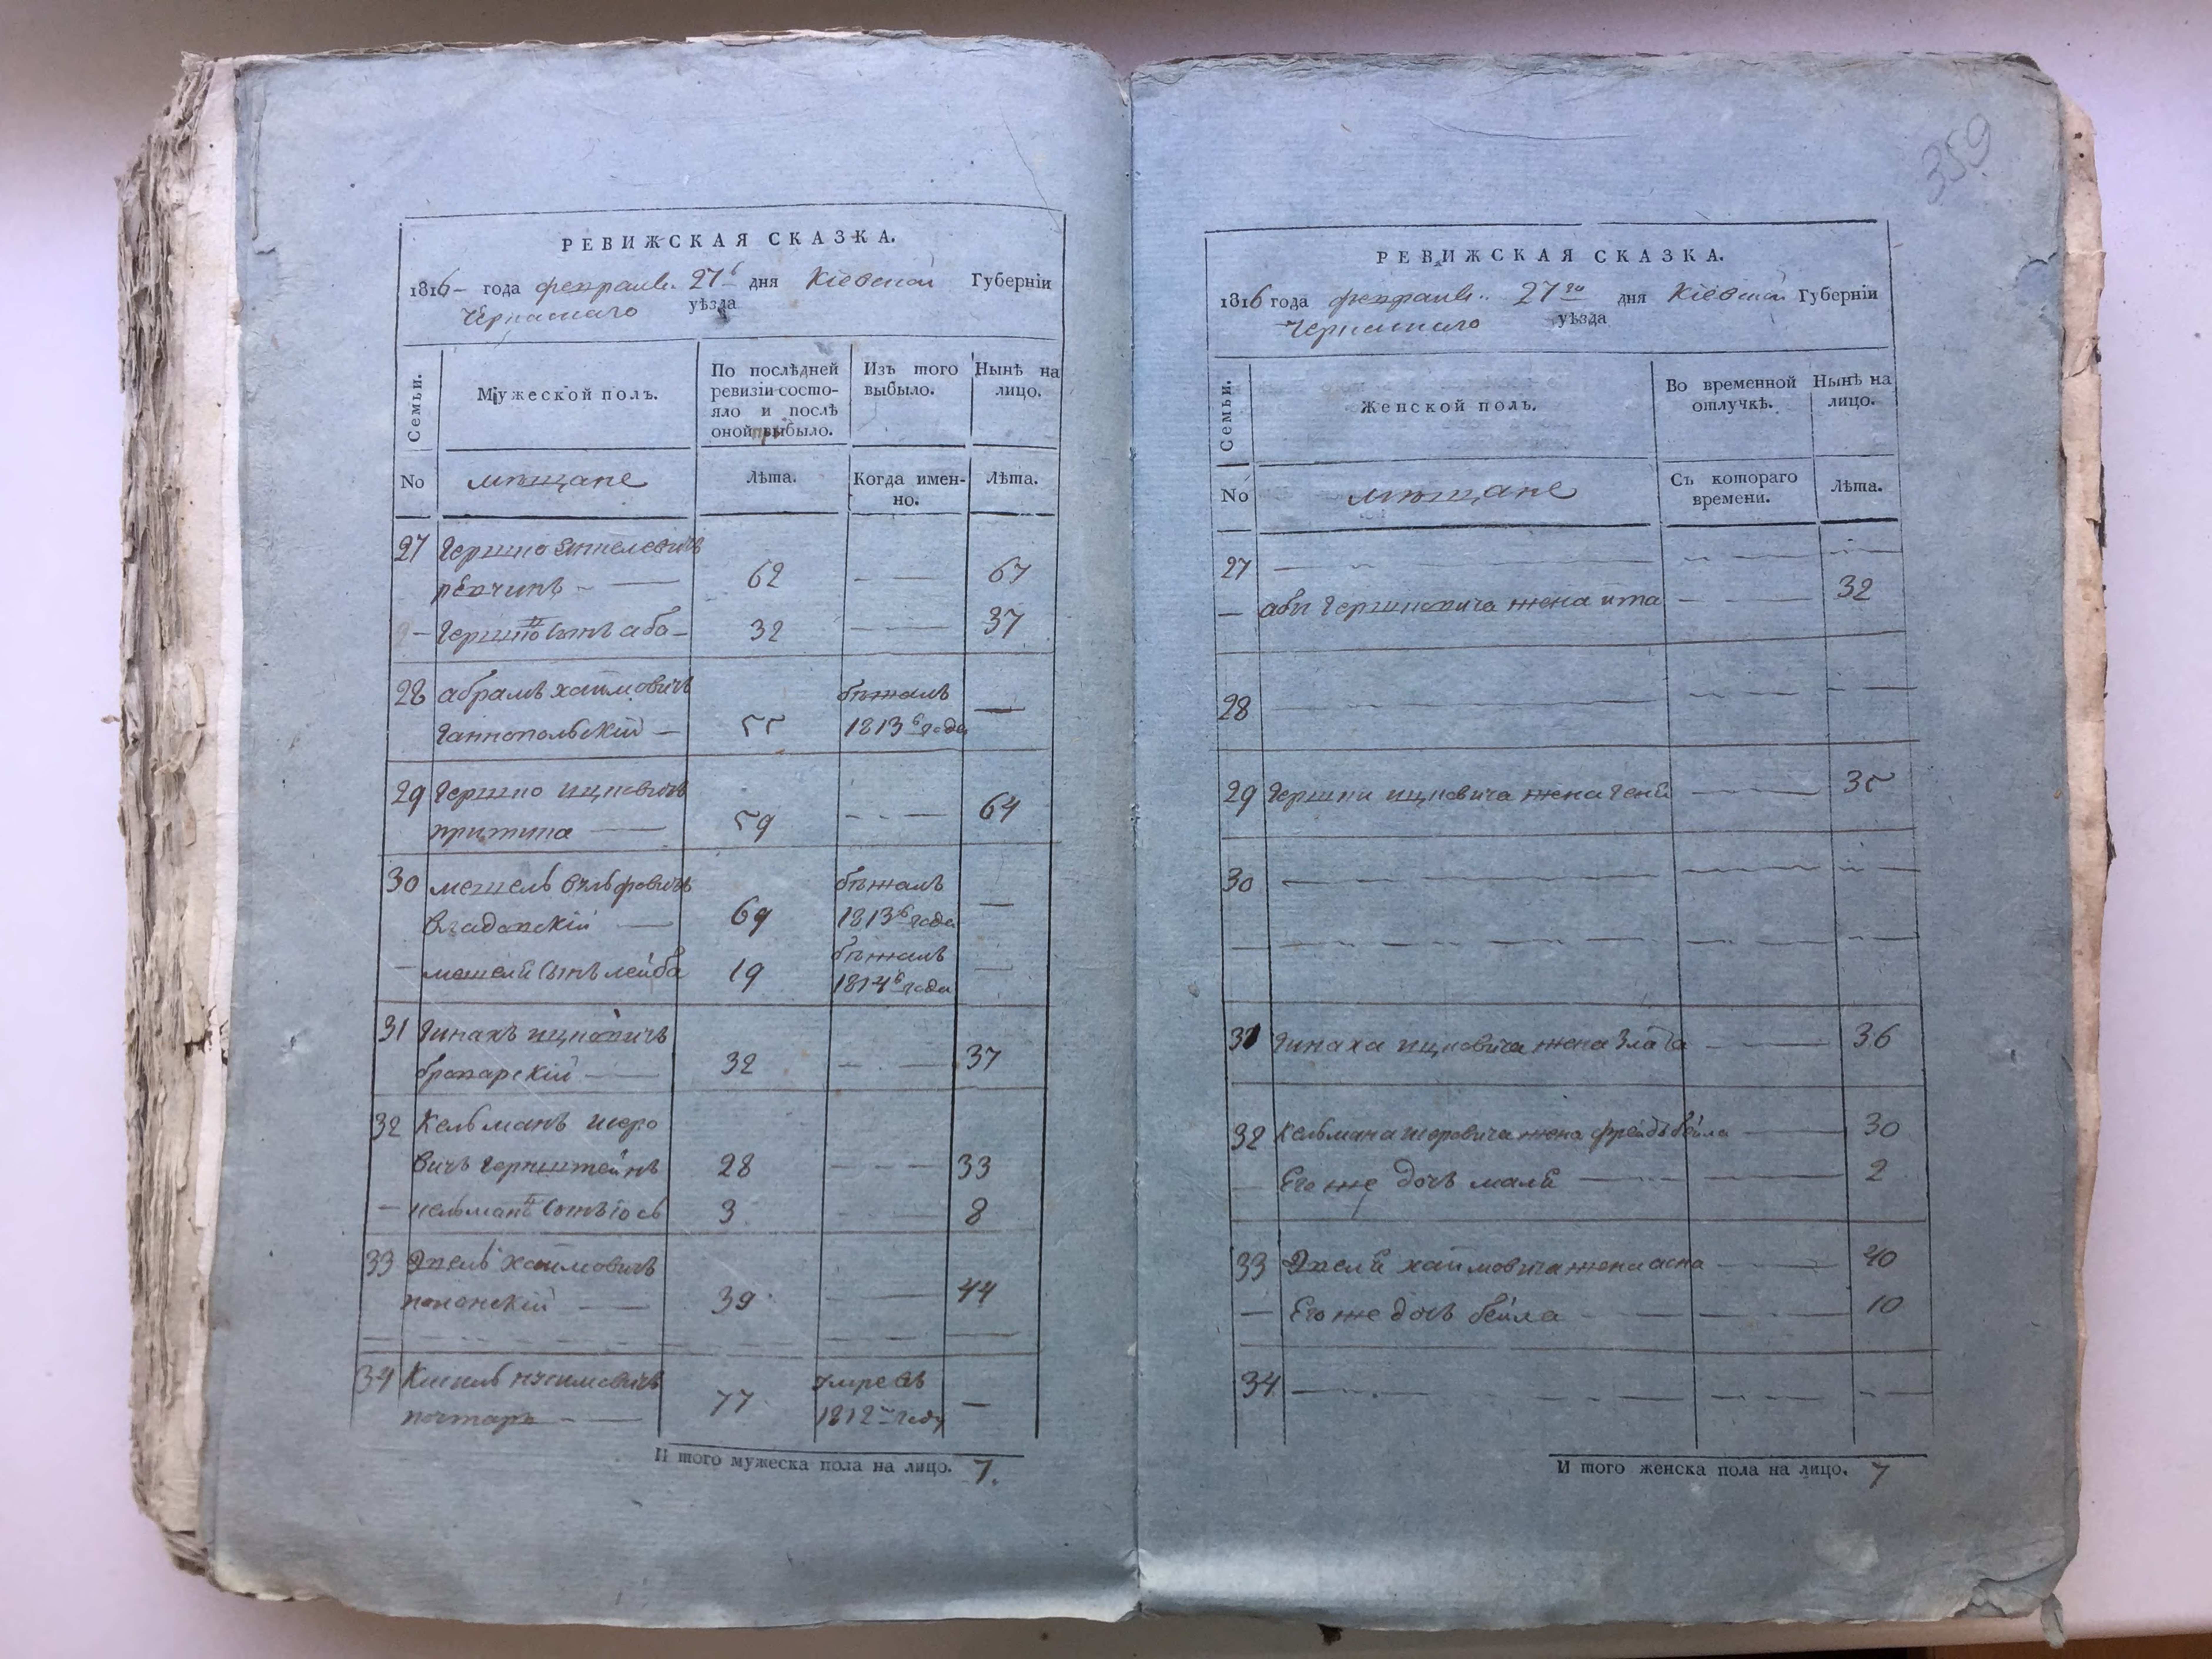 359
РЕВИЖСКАЯ СКАЗКА.
1816 года февраля 27 дня Кіевской Губерніи
Черкаскаго уѣзда
Семьи.
Мужеской полъ.
По послѣдней ревизіи состо-
яло и послѣ
оной прибыло.
Изъ того выбыло.
Нынѣ на лицо.
No
мѣщане
Лѣта.
Когда имен-
но.
Лѣта.
27 Гершко
62 — 67
— Гершко сынъ аба — 32 — 37
28 абрамъ хаимовичъ бѣжалъ
Ганнопольскій — 55 1813 года —
29 Гершко ицковичъ
59 — 64
30 мошель вульфовичъ бѣжалъ
69 1813 года —
— мошеля сынъ лейба 19 бѣжалъ
1814 года —
31 Пинахъ ицковичъ
32 — 37
32 Кельманъ шоро
вичъ Гернштейнъ 28 — 33
— кельмана сынъ іось 3 — 8
33 хаимовичъ
39 — 44
34 умре въ
77 1812 году —
И того мужеска пола на лицо. 7.
РЕВИЖСКАЯ СКАЗКА.
1816 года февраля 27 го дня Кіевской Губерніи
Черкаскаго уѣзда
Семьи.
Женской полъ.
Во временной
отлучкѣ.
Нынѣ на
лицо.
No
мѣщане
Съ котораго
времени.
Лѣта.
27
— абы Гершковича жена ита — 32
28
29 Гершки ицковича жена Геня — 35
30
31 Пинаха ицковича жена Злата — 36
32 Кельмана шоровича жена фрейдъ бейла — 30
— Его же дочь маля — 2
33 хаимовича жена — 40
— Его же дочь бейла — 10
34
И того женска пола на лицо. 7